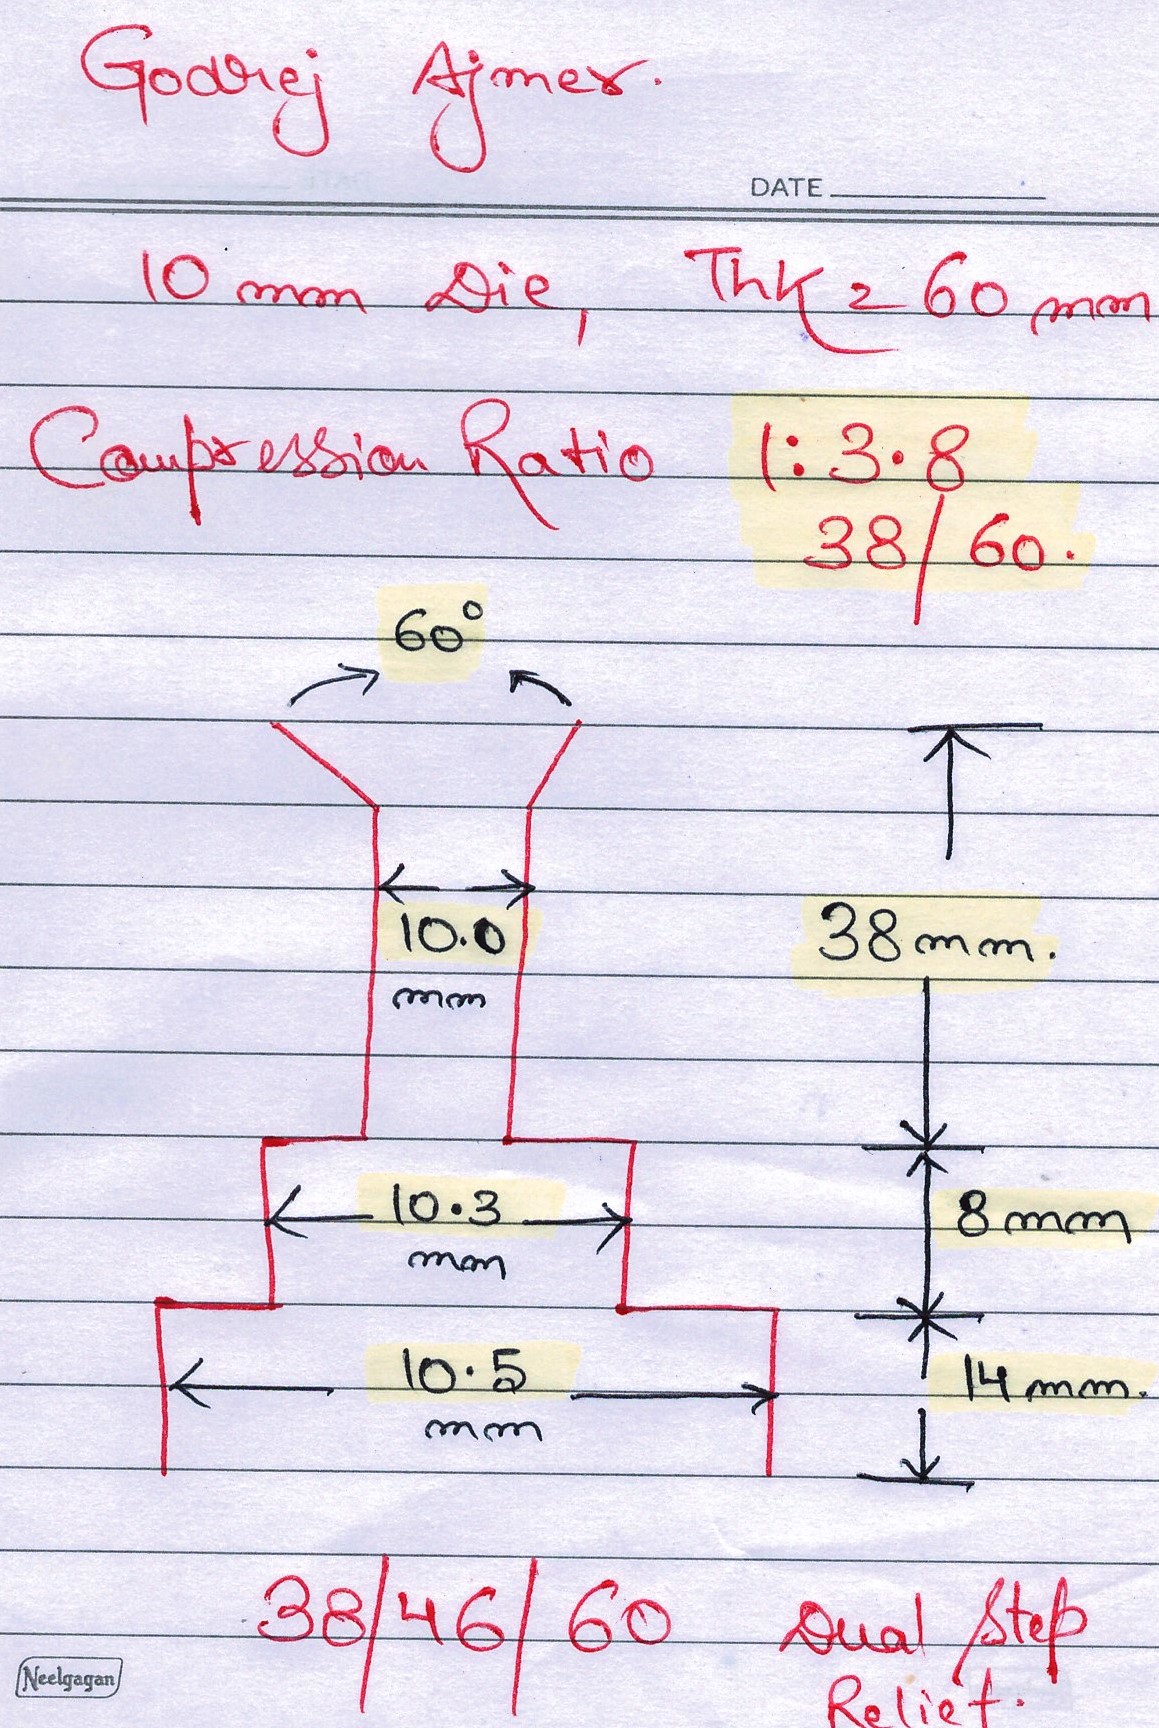 Godrej Ajmer.
DATE
10 mm Die, Thk = 60 mm
Compression Ratio 1:3.8
38/60.
60°
10.0
mm
38mm.
10.3
mm
8mm
10.5
mm
14mm.
38/46/60 Dual Step
Relief.
Neelgagan